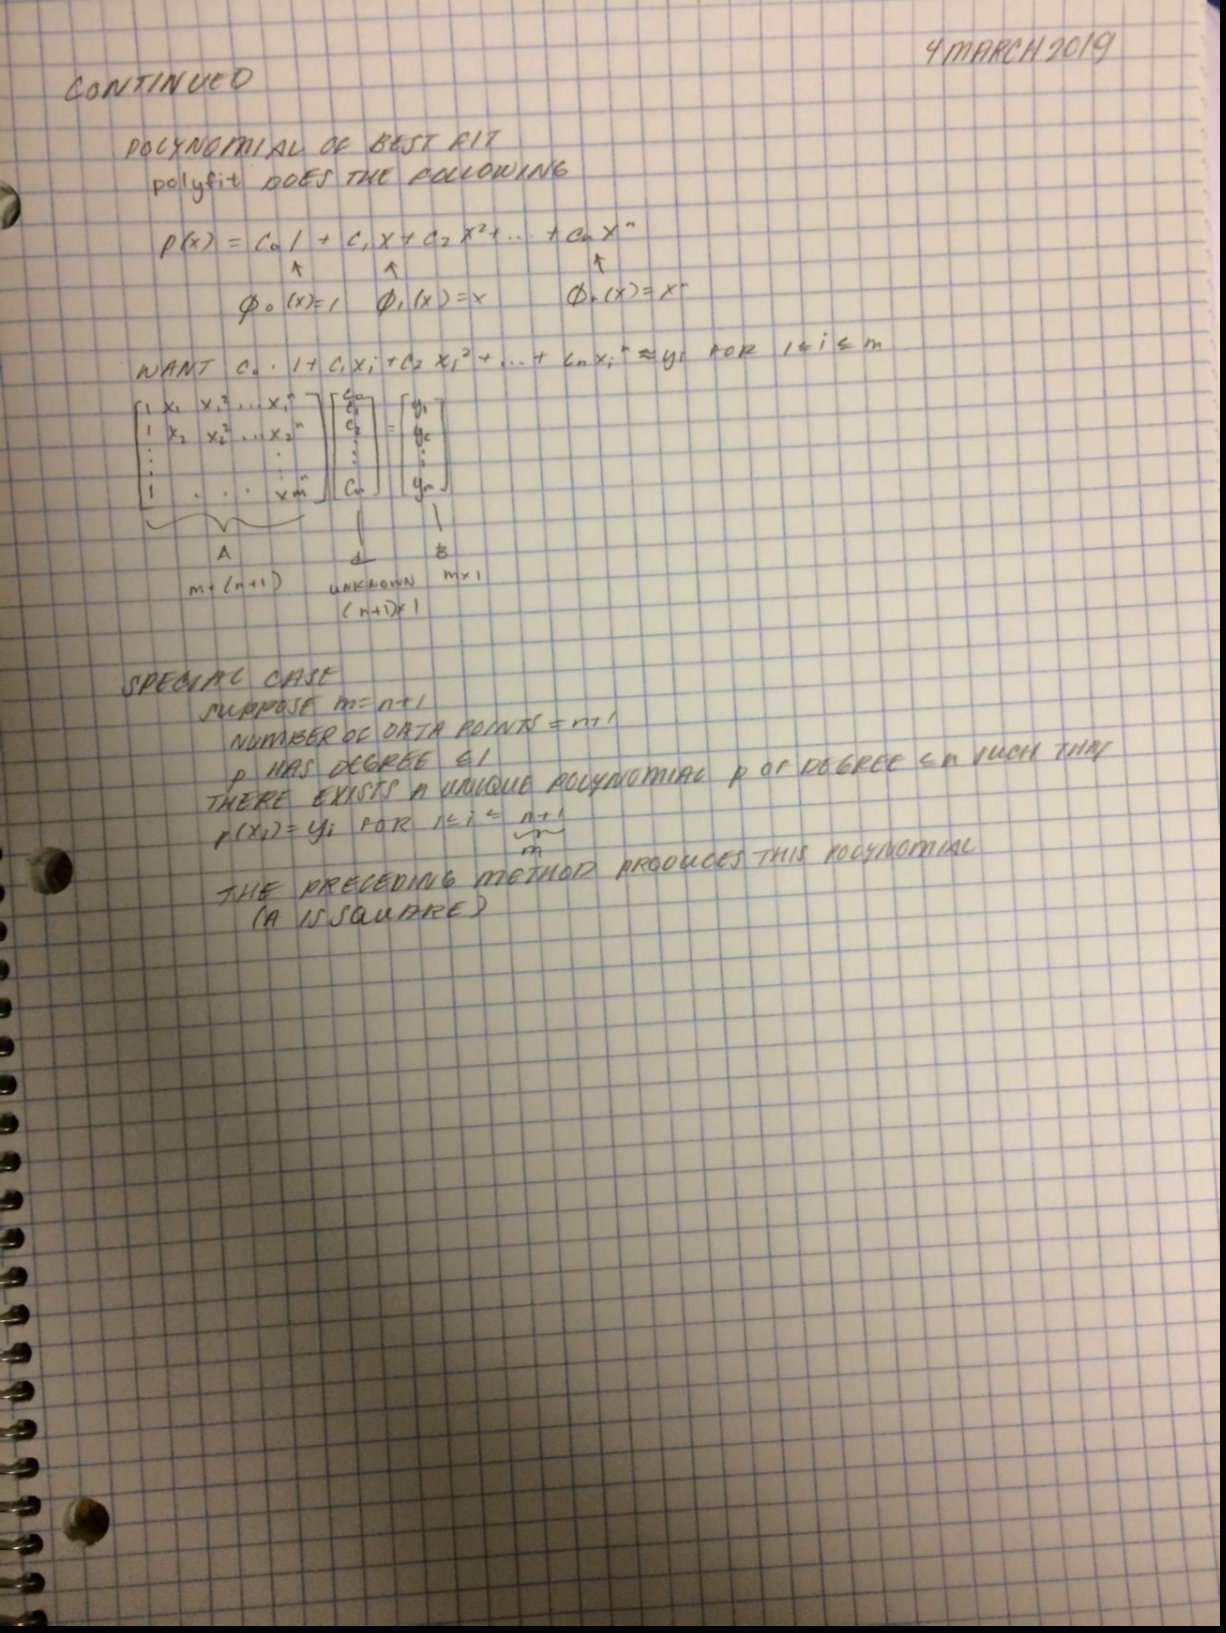 4 MARCH 2019
CONTINUED
POLYNOMIAL OF BEST FIT
polyfit DOES THE FOLLOWING
p(x) = c₀ 1 + c₁ x + c₂ x² + ... + cₙ xⁿ
↑ ↑ ↑
ϕ₀(x)=1 ϕ₁(x)=x ϕₙ(x)=xⁿ
WANT c₀ · 1 + c₁xᵢ + c₂ xᵢ² + ... + cₙ xᵢⁿ ≈ yᵢ FOR 1 ≤ i ≤ m
[1 x₁ x₁² ... x₁ⁿ] [c₀ c₁] = [y₁]
[1 x₂ x₂² ... x₂ⁿ] [c₂] [y₂]
⋮ ⋮ ⋮ ⋮
[1 . . . xmⁿ] [cₙ] [yₘ]
A B
m × (n+1) UNKNOWN m×1
(n+1)×1
SPECIAL CASE
SUPPOSE m = n+1
NUMBER OF DATA POINTS = n+1
p HAS DEGREE ≤ 1
THERE EXISTS A UNIQUE POLYNOMIAL p OF DEGREE ≤ n SUCH THAT
p(xᵢ) = yᵢ FOR 1 ≤ i ≤ n+1
m
THE PRECEDING METHOD PRODUCES THIS POLYNOMIAL
(A IS SQUARE)